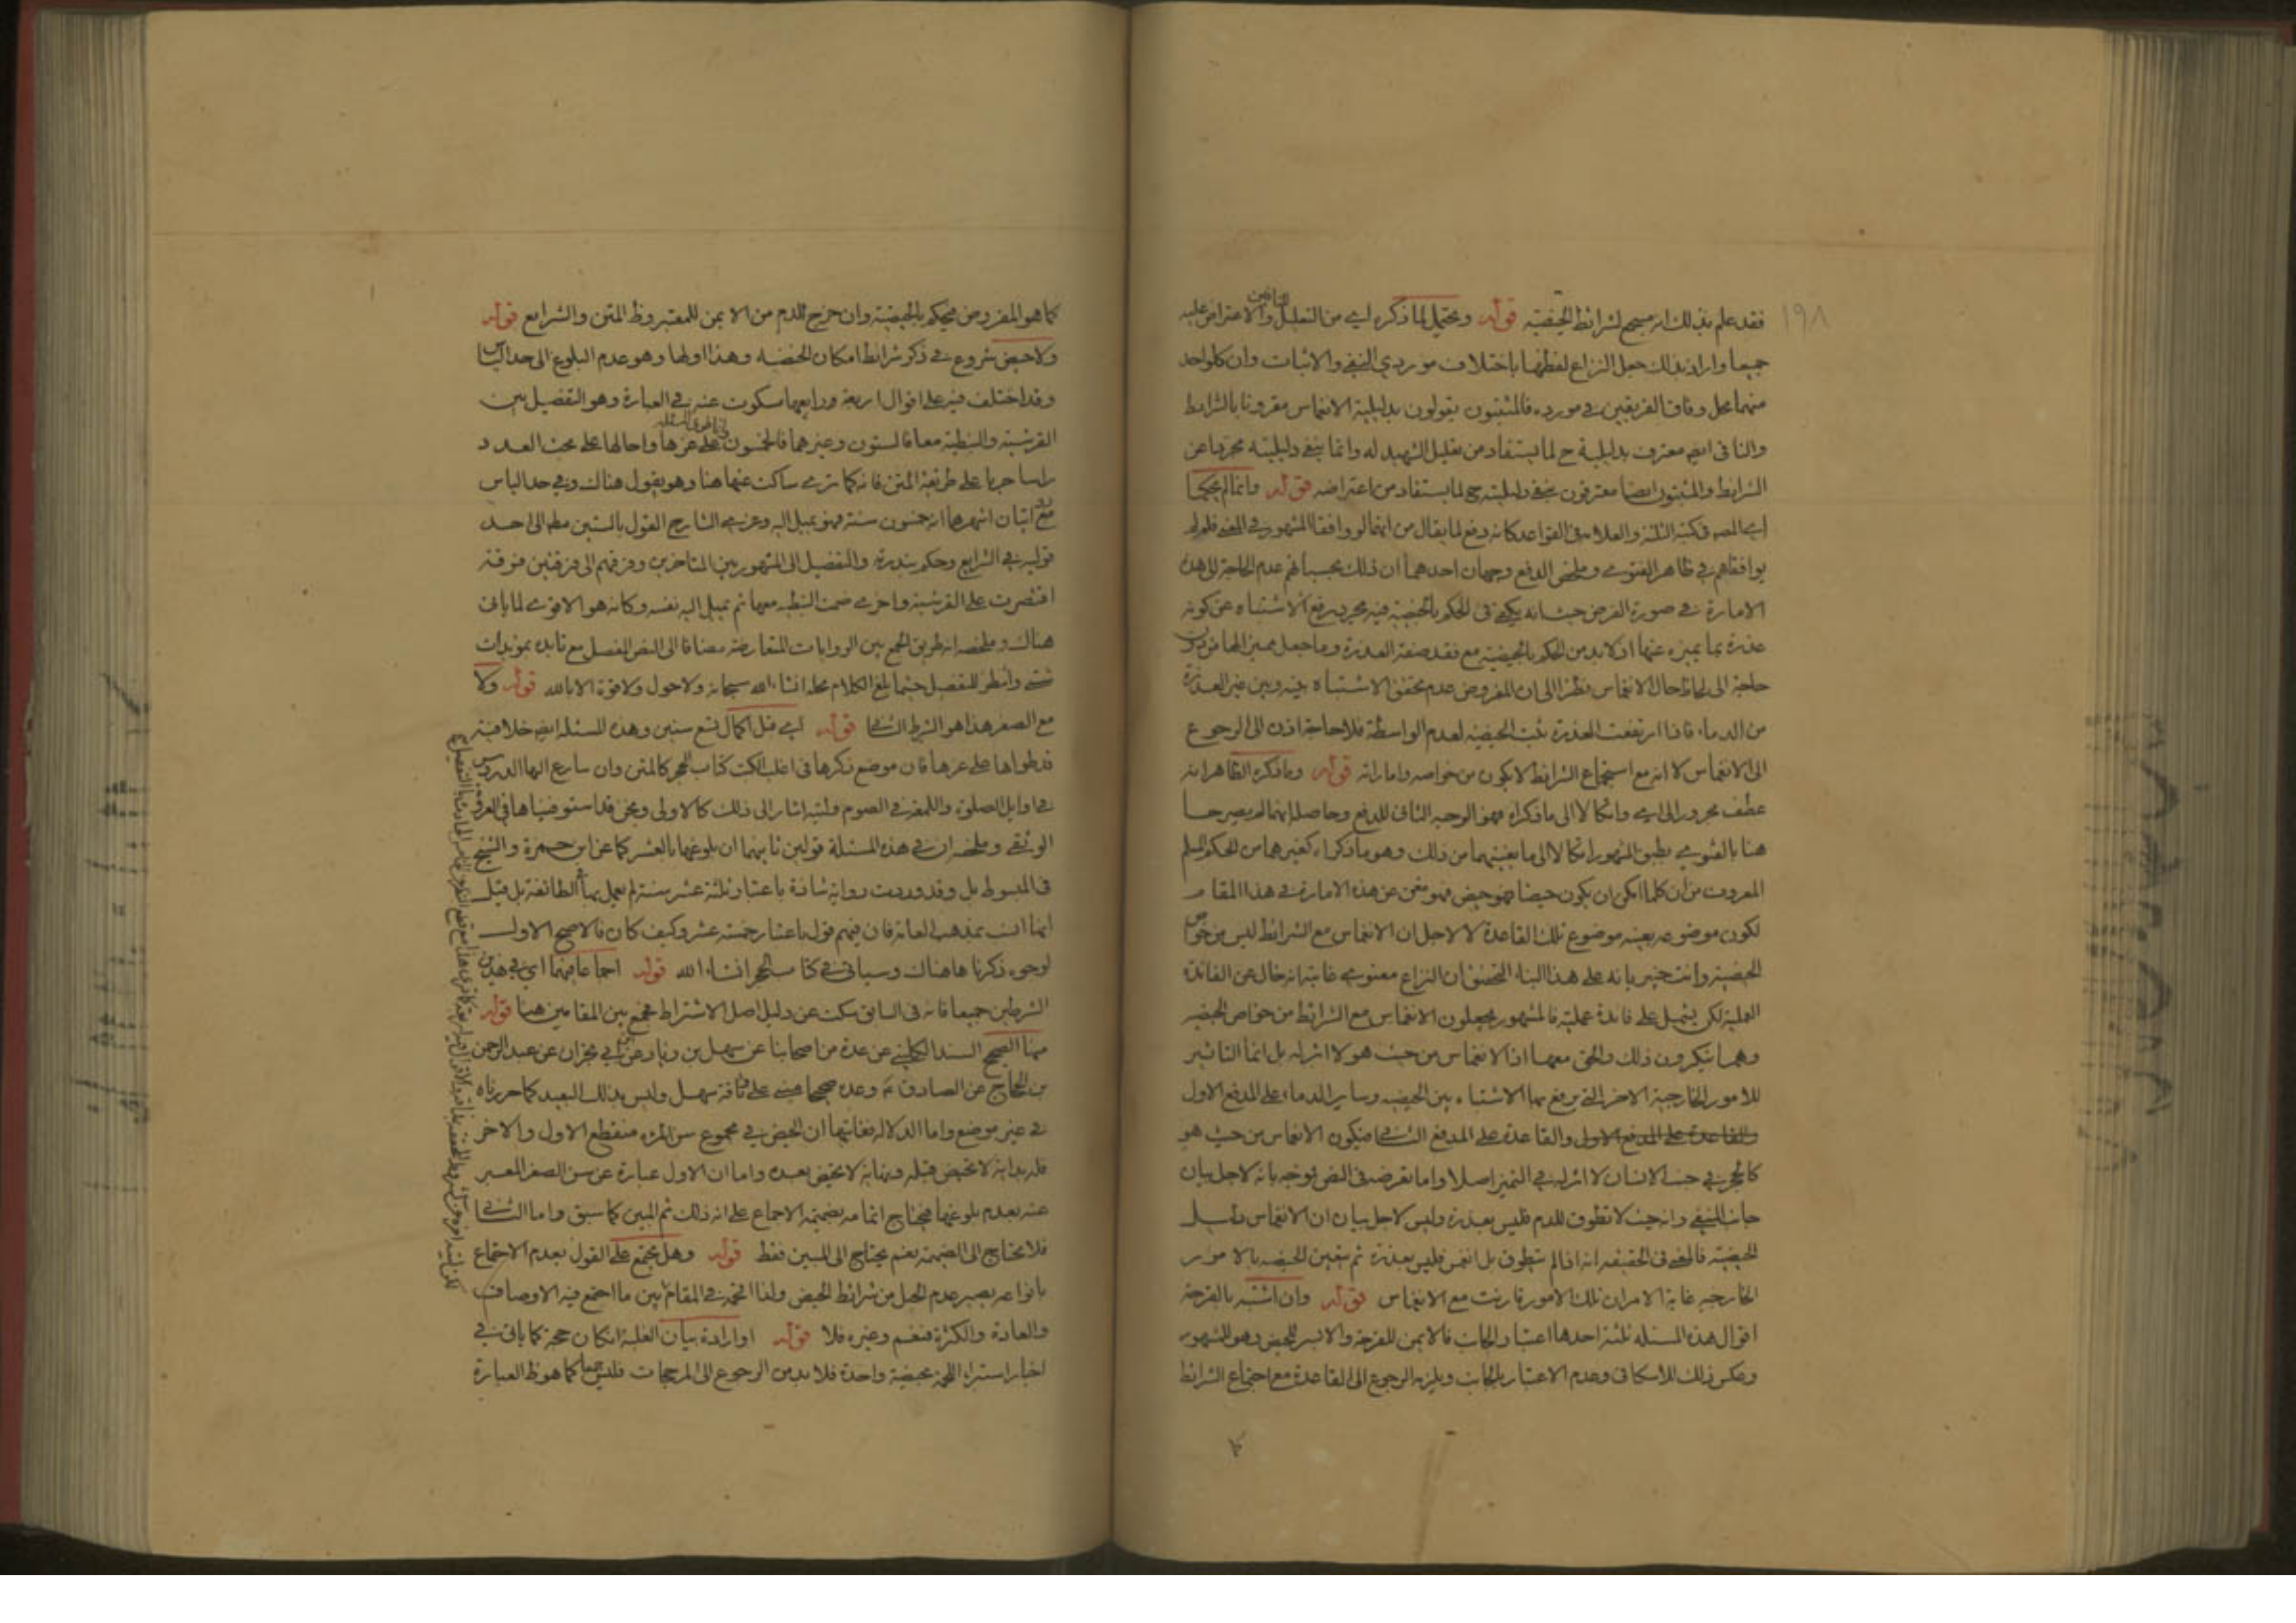 ١٩٨
فقد علم بذلك انه مسبح لشرائط الحيضيه قوله ويحتمل لما ذكره اي من التعليل والاعتراض عليه
جميعا واراد بذلك جعل النزاع لفظيا باختلاف موردي النفي والاثبات وان كلا واحد
منهما محل وفاق الفريقين في مورده فالمثبتون يقولون بدليلية الانغماس مقرونا بالشرائط
والنافي ايضا معترف بدليلية ح لما يستفاد من تعليل الشهيد له وانما ينفي دليليته مجردا عن
الشرائط والمثبتون ايضا معترفون بنفي دليليته ح لما يستفاد من اعتراضه قوله وانما لم يحكما
اي المصـ في كتبه الثلثة والعلامة في القواعد كانه دفع لما يقال من انهما لو وافقا المشهور في المعنى فلم لم
يوافقاهم في ظاهر الفتوى وملخص الدفع وجهان احدهما ان ذلك بحسب عدم الحاجة الى هذه
الامارة في صورة الفرض حيث انه يكفي في الحكم بالحيضية فيه مجرد رفع الاشتباه عن كونه
عذرة بما يميزه عنها اذ لا بد من الحكم بالحيضية مع فقد صفة العذرة وما جعل مميزا لها من دون
حاجة الى لحاظ حال الانغماس نظرا الى ان المفروض عدم تحقق الاشتباه بينه وبين غير العذرة
من الدماء فاذا ارتفعت العذرة ثبت الحيضية لعدم الواسطة فلا حاجة اذن الى الرجوع
الى الانغماس لا انه مع استجماع الشرائط لا يكون من خواصه واماراته قوله وما ذكره الظاهر انه
عطف مجرور الى اي واتكالا الى ما ذكراه فهو الوجه الثاني للدفع وحاصله انهما لم يصرحا
هنا بالفتوى بطبق المشهور اتكالا الى ما يغنيهما من ذلك وهو ما ذكراه كغيرهما من الحكم المسلم
المعروف من ان كلما امكن ان يكون حيضا فهو حيض فهو مغن عن هذه الامارة في هذا المقام
لكون موضوعه بعينه موضوع تلك القاعدة لا لاجل ان الانغماس مع الشرائط ليس من خواص
الحيضية وانت خبير بانه على هذا البناء التحقيق ان النزاع معنوي غايته انه خال عن الفائدة
العملية لكن يشتمل على فائدة علمية فالمشهور يجعلون الانغماس مع الشرائط من خواص الحيضيه
وهما ينكرون ذلك والحق معهما اذ الانغماس من حيث هو لا اثر له بل انما التاثير
للامور الخارجية الاخر التي يرفع بها الاشتباه بين الحيضيه وساير الدماء على المدفع الاول
والقاعدة على المدفع الاول والقاعدة على المدفع الثاني فيكون الانغماس من حيث هو
كالحجر في جنب الانسان لا اثر له في التميز اصلا واما تعرضه في النص فوجه بانه لاجل بيان
جانب النفي وانه حيث لا تطوق للدم فليس بعذرة وليس لاجل بيان ان الانغماس دليل
الحيضية فالمعنى في الحقيقه انه اذا لم يتطوق بل انغمس فليس بعذرة ثم يتعين الحيضيه بالامور
الخارجيه غاية الامر ان تلك الامور قارنت مع الانغماس قوله وان اشتبه بالقرحة
اقوال هذه المسئله ثلثة احدها اعتبار الجانب فالايمن للقرحة والايسر للحيض وهو المشهور
وعكس ذلك للاسكافي وعدم الاعتبار بالجانب ويلزمه الرجوع الى القاعدة مع اجتماع الشرائط
كما
كما هو المفروض فيحكم بالحيضية وان خرج الدم من الايمن للمعتبر وظ المتن والشرايع قوله
ولا حيض شروع في ذكر شرائط امكان الحيضيه وهذا اولها وهو عدم البلوغ الى حد الياس
وقد اختلف فيه على اقوال اربعة ورابعها مسكوت عنه في العبارة وهو التفصيل بين
القرشية والنبطية معا فالستون وغيرهما فالخمسون على غرها واحالها على بحث العدد
راسا جريا على طريقة المتن فانه كما ترى ساكت عنها هنا وهو يقول هناك وفي حد الياس
روايتان اشهرهما انه خمسون سنة فهو يميل اليه وعزى الشارح القول بالستين مط الى احد
قوليه في الشرايع وحكم بندرته والتفصيل الى المشهور بين المتاخرين وفرقهم الى فرقتين فرقة
اقتصرت على القرشية واخرى ضمت النبطيه معها ثم يميل اليه نفسه وكانه هو الاقوى لما ياتي
هناك وملخصه انه طريق الجمع بين الروايات المتعارضة مضافا الى النص المفصل مع تايده بمؤيدات
شتى وانتظر للتفصيل حيثما بلغ الكلام محله انشاء الله سبحانه ولا حول ولا قوة الا بالله قوله ولا
مع الصغر هذا هو الشرط الثاني قوله اي قبل اكمال تسع سنين وهذه المسئله ايضا خلافية
قد طواها على غرها فان موضع ذكرها في اغلب الكتب كتاب الحجر كالمتن وان سارع اليها الدروس
في اوايل الصلوة واللمعة في الصوم وليته اشار الى ذلك كالاولى ونحن قد استوفيناها في العروة
الوثقى وملخصه ان في هذه المسئلة قولين ثانيهما ان بلوغها بالعشر كما عن ابن حمزة والشيخ
في المبسوط بل وقد وردت رواية شاذة باعتبار ثلثة عشر سنة لم يعمل بها الطائفة بل قيل
انها انسب بمذهب العامة فان فيهم قول باعتبار خمسة عشر وكيف كان فالاصح الاول
لوجوه ذكرناها هناك وسياتي في كتاب الحجر انشاء الله قوله اجماعا فيهما اي في هذين
الشرطين جميعا فانه في السابق سكت عن دليل اصل الاشتراط فجمع بين المقامين هنا قوله
منها الصحيح السند الكليني عن عدة من اصحابنا عن سهل بن زياد عن ابن ابي نجران عن عبد الرحمن
بن الحجاج عن الصادق ع وعده صحيحا مبني على وثاقة سهل وليس بذلك البعيد كما حررناه
في غير موضع واما الدلاله فغايتها ان الحيض في مجموع سن المرءه منقطع الاول والاخر
فله بداية لا تحيض قبله ونهاية لا تحيض بعده واما ان الاول عبارة عن سن الصغر المعبر
عنه بعدم بلوغها فيحتاج اتمامه بضميمة الاجماع على انه ذلك ثم المبين كما سبق واما الثاني
فلا يحتاج الى الضميمه نعم يحتاج الى المبين فقط قوله وهل يجتمع على القول بعدم الاجتماع
بانواعه يصير عدم الحبل من شرائط الحيض ولذا اتجه في المقام بين ما اجتمع فيه الاوصاف
والعادة والكثرة فنعم وغيره فلا قوله اوارادة بيان الغلبة ان كان حجة كما ياتي في
اخبار استبراء الامة بحيضة واحدة فلا بد من الرجوع الى المرجحات فليس جمعا كما هو ظ العبارة